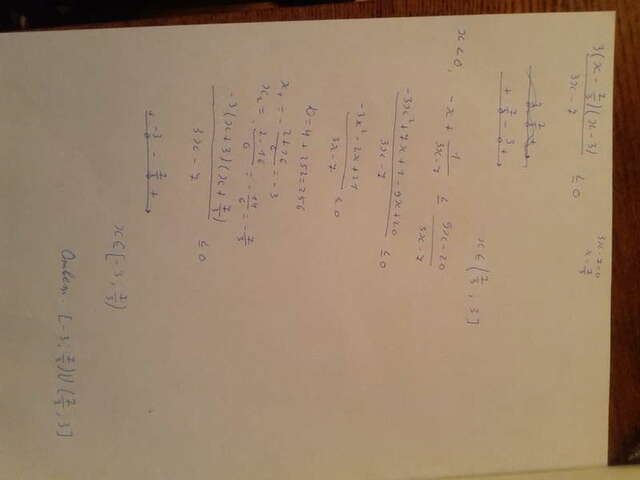 3(x - 7/3)(x - 3) / 3x - 7 ≤ 0
3x - 7 = 0
x = 7/3
+ 7/3 - 3 +
x ∈ (7/3 ; 3]
x < 0, -x + 1/3x-7 ≤ 9x-20/3x-7
-3x² + 7x + 1 - 9x + 20 / 3x - 7 ≤ 0
-3x² - 2x + 21 / 3x - 7 ≤ 0
D = 4 + 252 = 256
x₁ = - 2+16/6 = -3
x₂ = - 2-16/6 = - -14/6 = 7/3
-3(x+3)(x+ 7/3) / 3x - 7 ≤ 0
+ -3 - 7/3 +
x ∈ [-3 ; 7/3)
Ответ: [-3 ; 7/3) ∪ (7/3 ; 3]